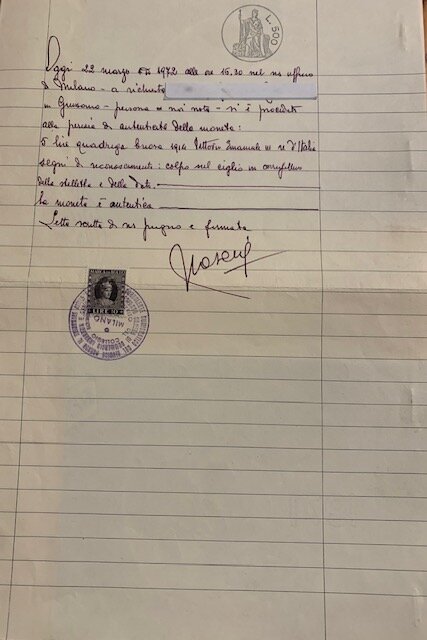 L. 500
Oggi 22 marzo 1972 alle ore 16.30 nel ns ufficio
di Milano - a richiesta
in Grussono - persona a noi nota - si è proceduto
alla perizia di autenticità della moneta:
5 lire quadriga briosa 1914 Vittorio Emanuele III re d'Italia
segni di riconoscimento: colpo sul ciglio in
della stelletta e della data.
La moneta è autentica
Letto scritto di ns pugno e firmato
LIRE 10
MILANO
COLLEGIO